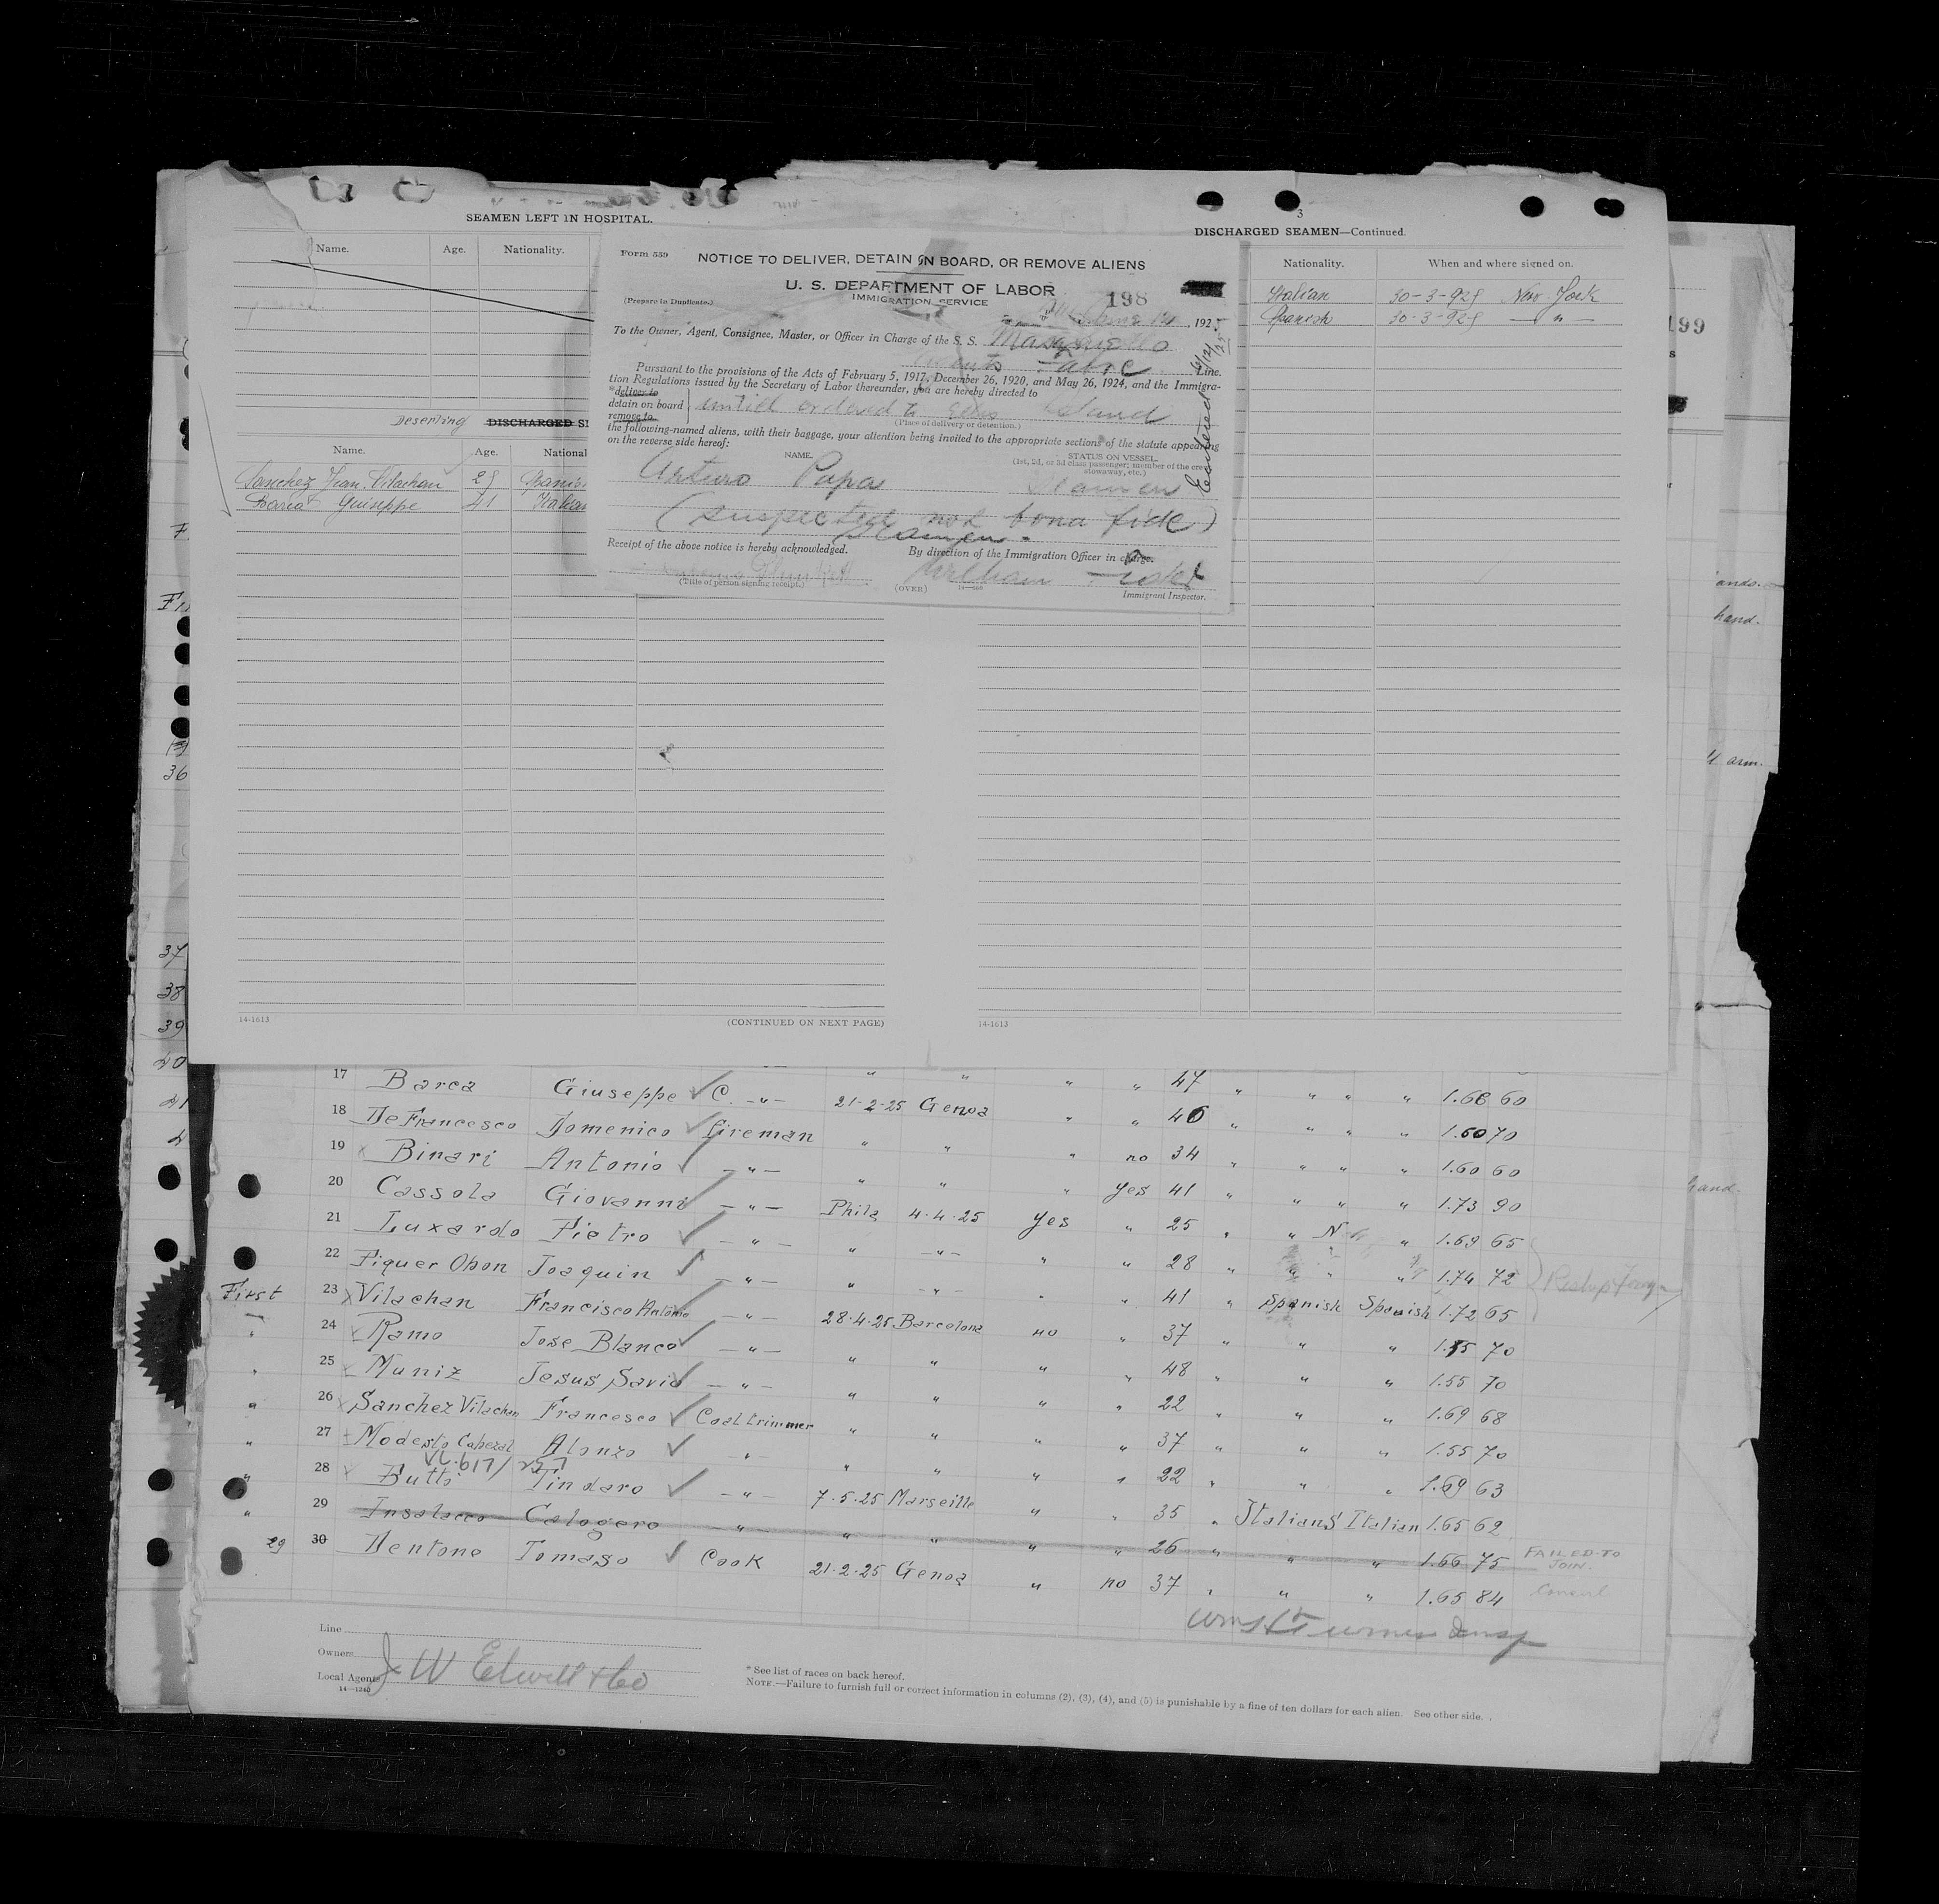 SEAMEN LEFT IN HOSPITAL.
Name. Age. Nationality.
3
DISCHARGED SEAMEN—Continued.
Nationality. When and where signed on.
Italian 30-3-925 New York
Spanish 30-3-925 — " —
199
Form 559
NOTICE TO DELIVER, DETAIN ON BOARD, OR REMOVE ALIENS
U. S. DEPARTMENT OF LABOR
IMMIGRATION SERVICE
(Prepare in Duplicate.)
198
June 12, 1925
To the Owner, Agent, Consignee, Master, or Officer in Charge of the S. S.
Fabre Line.
Pursuant to the provisions of the Acts of February 5, 1917, December 26, 1920, and May 26, 1924, and the Immigra-
tion Regulations issued by the Secretary of Labor thereunder, you are hereby directed to
*deliver to
detain on board until ordered to Island
remove to
(Place of delivery or detention.)
the following-named aliens, with their baggage, your attention being invited to the appropriate sections of the statute appearing
on the reverse side hereof:
NAME. STATUS ON VESSEL.
(1st, 2d, or 3d class passenger; member of the crew,
stowaway, etc.)
Arturo Papa Seamen
(suspected not bona fide)
Seamen.
Receipt of the above notice is hereby acknowledged. By direction of the Immigration Officer in charge.
William
(Title of person signing receipt.) (OVER) Immigrant Inspector.
Deserting DISCHARGED SE
Name. Age. National
Sanchez Vilachan 25 Spanis
Guiseppe 41 Italian
36
37
38
39
40
41
ands.
hand.
arm.
hand.
14-1613 (CONTINUED ON NEXT PAGE) 14-1613
17 Barca Giuseppe C. — " — 21-2-25 Genoa " " 47 " " " " 1.68 60
18 De Francesco Domenico Fireman " " " " 46 " " " " 1.60 70
19 Binari Antonio — " — " " " no 34 " " " " 1.60 60
20 Cassola Giovanni — " — Phila 4.4.25 " yes 41 " " " " 1.73 90
21 Luxardo Pietro — " — " — " — yes " 25 " " N " 1.69 65
22 Piquer Obon Joaquin — " — " — " — " " 28 " " " " 1.74 72
First 23 Vilachan Francisco Antonio — " — 28.4.25 Barcelona " " 41 " Spanish Spanish 1.72 65
" 24 Ramo Jose Blanco — " — " " no " 37 " " " 1.55 70
" 25 Muniz Jesus Savio — " — " " " " 48 " " " 1.55 70
" 26 Sanchez Vilachan Francesco Coaltrimmer " " " " 22 " " " 1.69 68
" 27 Modesto Cabezal Alonzo — " — " " " " 37 " " " 1.55 70
" 28 Butto Tindaro — " — 7.5.25 Marseille " " 22 " " " 1.69 63
" 29 Insalacco Calogero — " — " " " " 35 " Italian S Italian 1.65 62
29 30 Dentone Tomaso Cook 21.2.25 Genoa " " 26 " " " 1.66 75 FAILED TO JOIN.
" no 37 " " " 1.65 84 Consul
Line
Owners
Local Agents J W Elwell & Co
14—1240
* See list of races on back hereof.
NOTE.—Failure to furnish full or correct information in columns (2), (3), (4), and (5) is punishable by a fine of ten dollars for each alien. See other side.